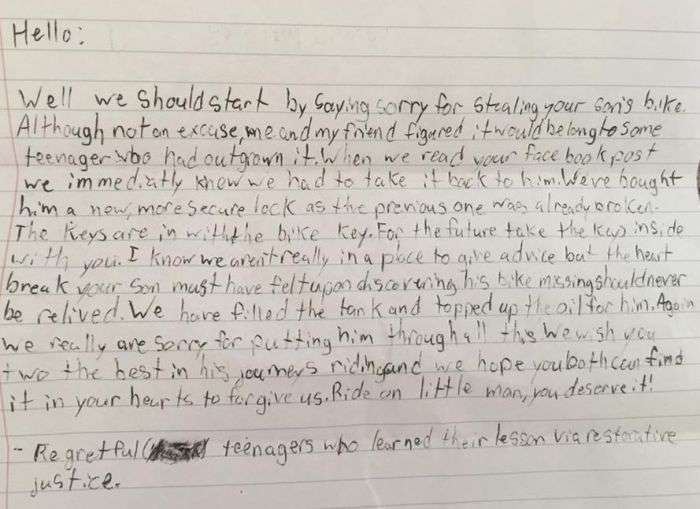 Hello:
Well we should start by saying sorry for stealing your son's bike.
Although not an excuse, me and my friend figured it would belong to some
teenager who had outgrown it. When we read your facebook post
we immediatly knew we had to take it back to him. We've bought
him a new, more secure lock as the previous one was already broken.
The keys are in with the bike key. For the future take the keys inside
with you. I know we aren't really in a place to give advice but the heart
break your son must have felt upon discovering his bike missing should never
be relived. We have filled the tank and topped up the oil for him. Again
we really are sorry for putting him through all this We wish you
two the best in his journeys riding and we hope you both can find
it in your hearts to forgive us. Ride on little man, you deserve it!
- Regretful teenagers who learned their lesson via restorative
justice.